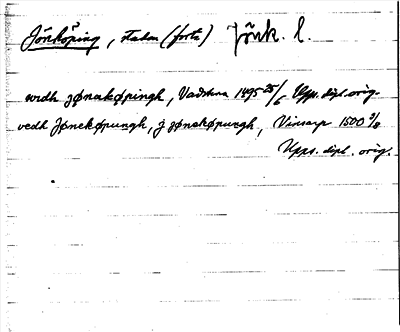 Jönköping, staden (forts) Jönk. l.
widh jønekøpingh, Vadstena 1495 25/6 Upps. dipl. orig.
vedh Jønekøpungh, j jønekøpungh, Vinsarp 1500 9/8
Upps. dipl. orig.